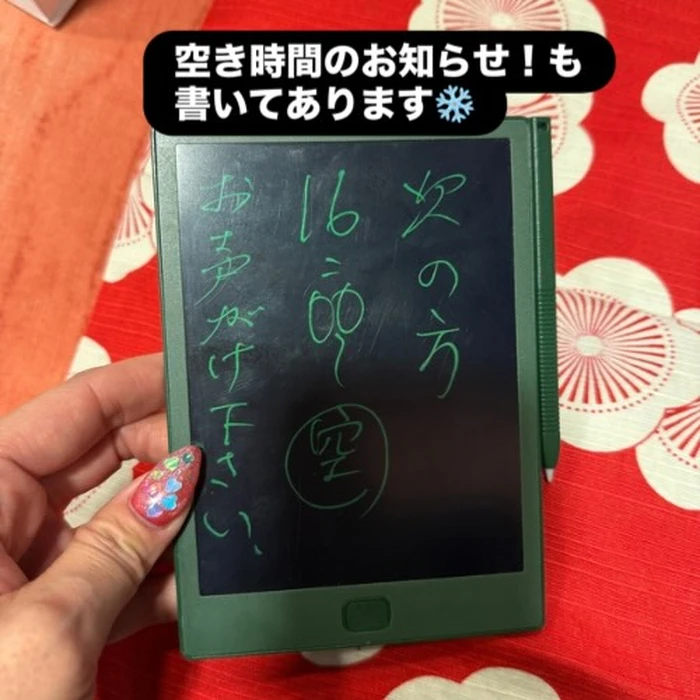 空き時間のお知らせ！も
書いてあります❄️
次の方
16:00〜
空
お声がけ下さい、